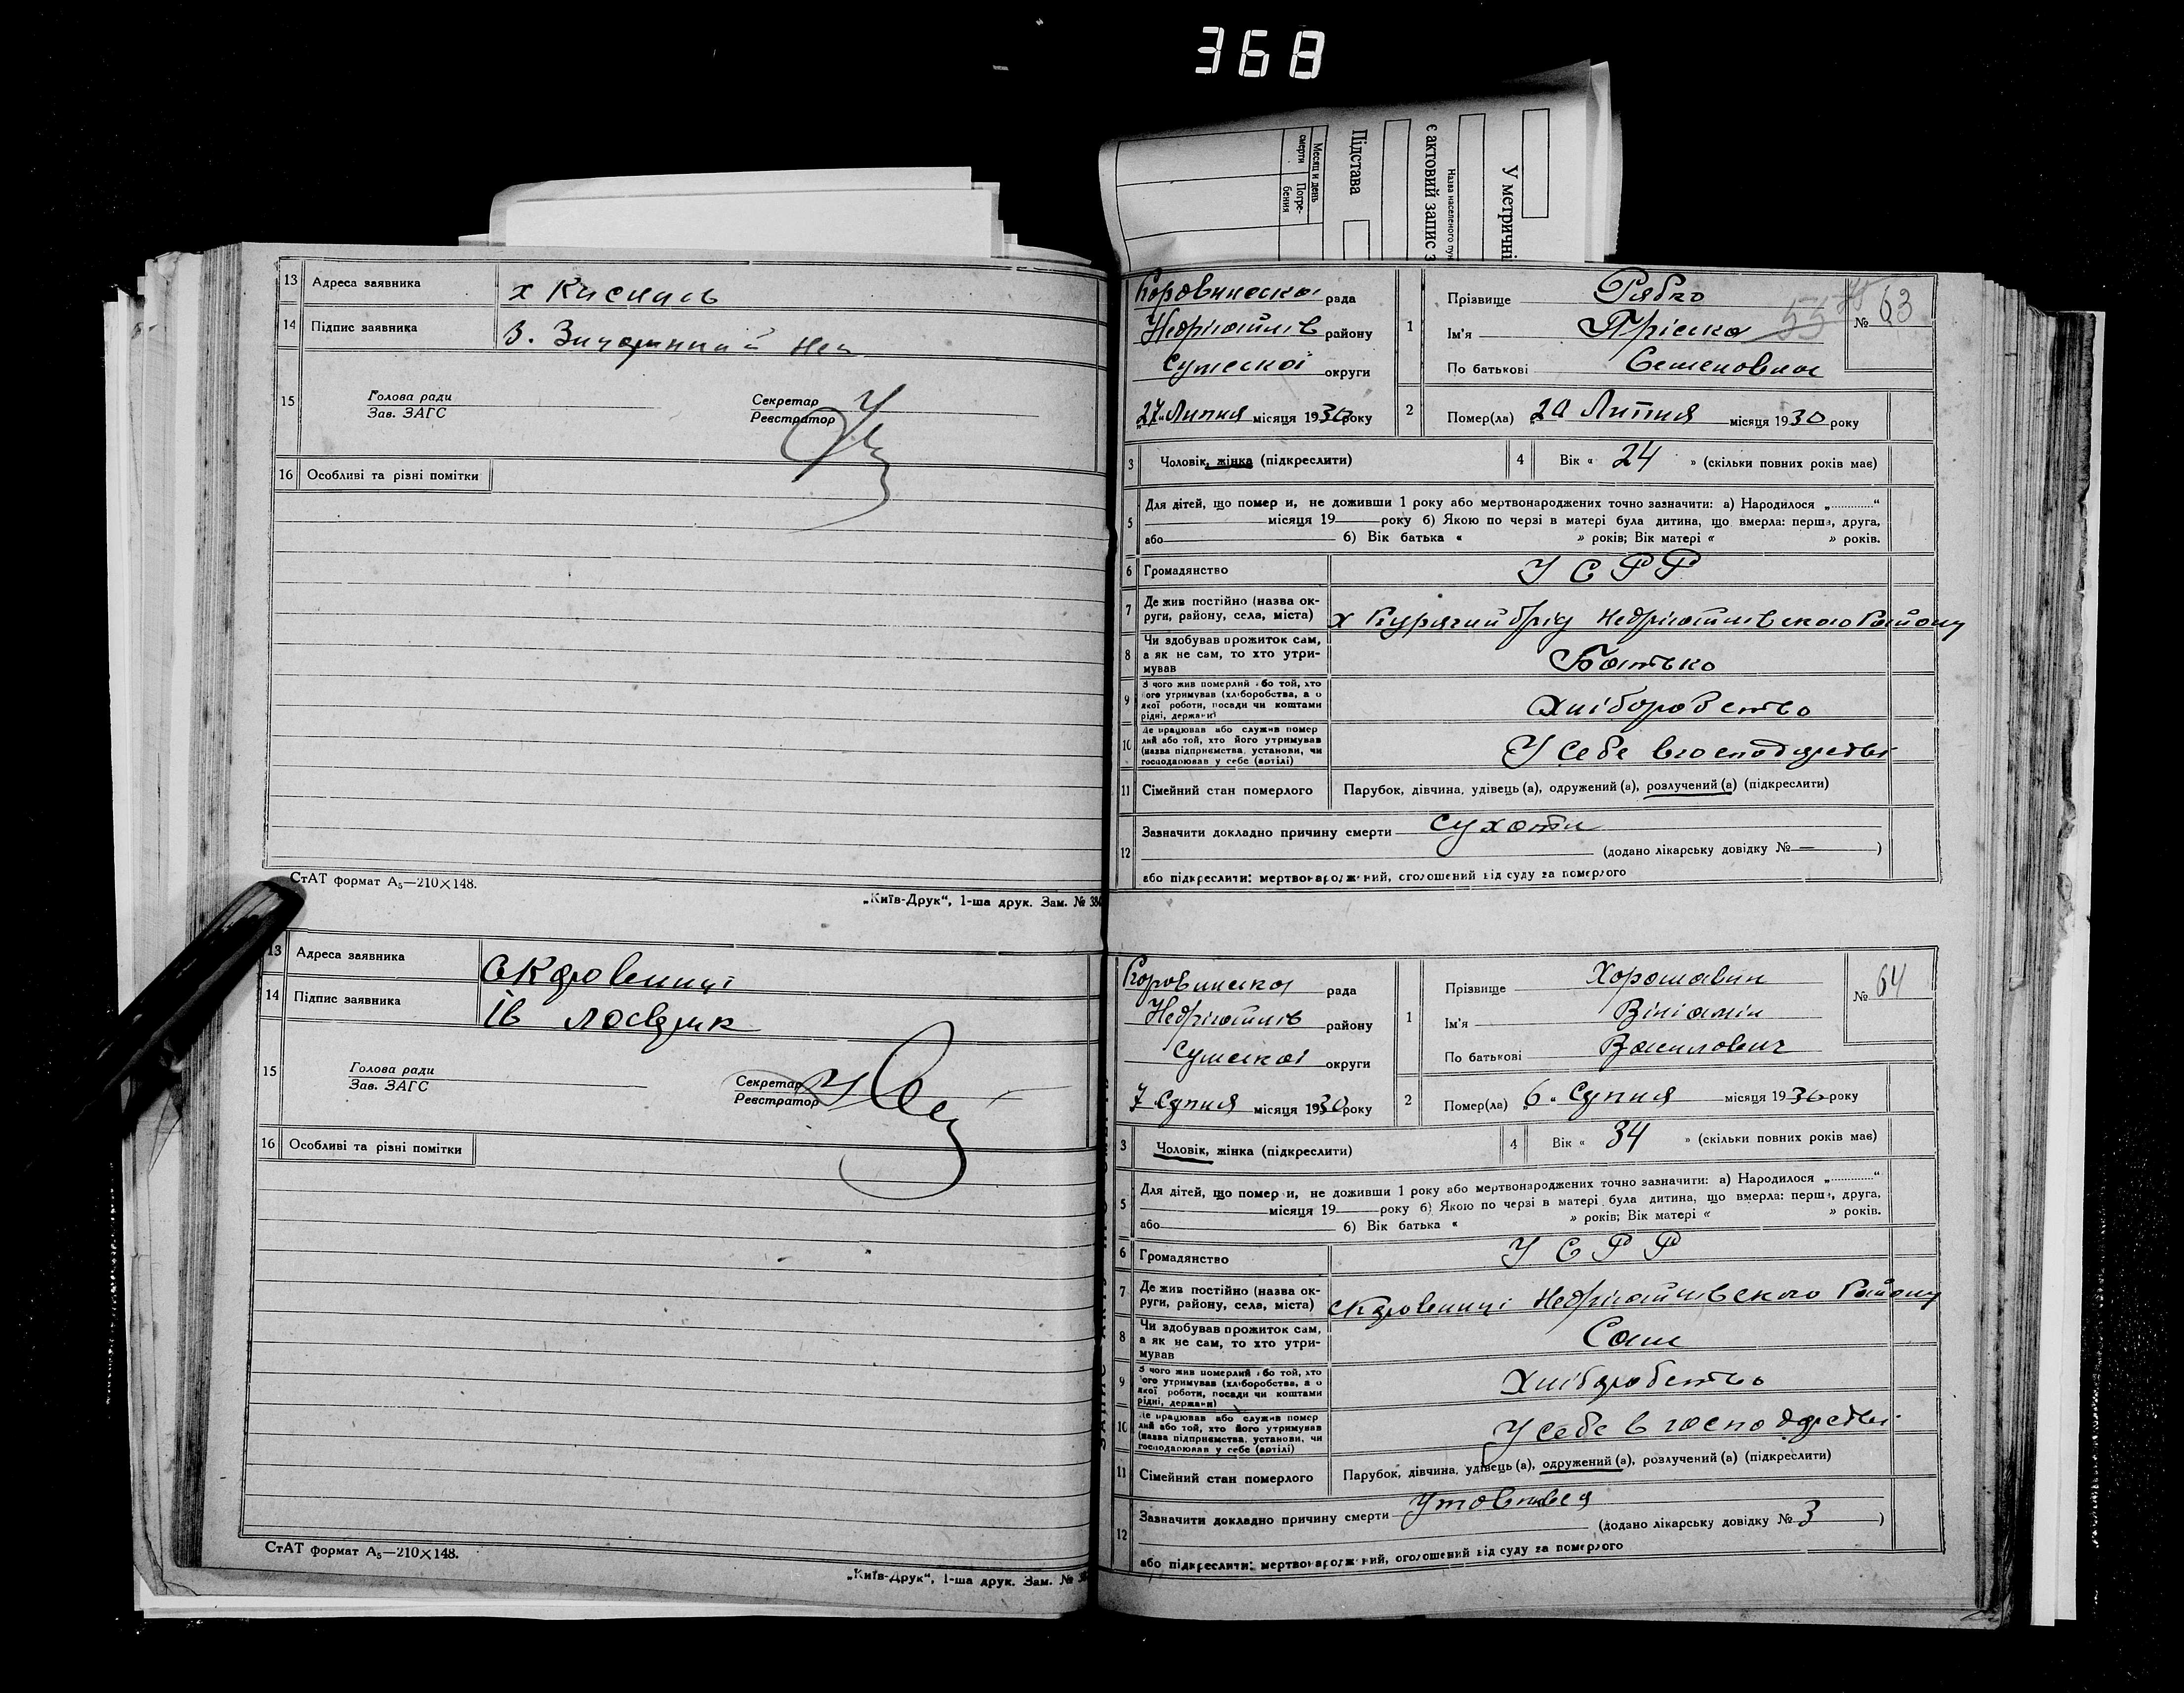 368
У метричні
Назва населеного пун
є актовий запис з
Підстава
Месяц и день
смерти
Погре-
бения
13 Адреса заявника
14 Підпис заявника
15 Голова ради
Зав. ЗАГС
Секретар
Реєстратор
16 Особливі та різні помітки
СтАТ формат А₅—210×148.
„Київ-Друк“, 1-ша друк. Зам. № 38
13 Адреса заявника
14 Підпис заявника Ів
15 Голова ради
Зав. ЗАГС
Секретар
Реєстратор
16 Особливі та різні помітки
СтАТ формат А₅—210×148.
„Київ-Друк“, 1-ша друк. Зам. №
Коровинська рада
Недригайлів району
Сумської округи
27 Липня місяця 1930 року
1 Прізвище Рябко
Ім'я Пріська
По батькові Семеновна
55
№ 63
2 Помер(ла) 20 Липня місяця 1930 року
3 Чоловік, жінка (підкреслити)
4 Вік « 24 » (скільки повних років має)
5 Для дітей, що померли, не доживши 1 року або мертвонароджених точно зазначити: а) Народилося „............“
місяця 19 року б) Якою по черзі в матері була дитина, що вмерла: перша, друга,
або б) Вік батька « » років; Вік матері « » років.
6 Громадянство УСРР
7 Де жив постійно (назва ок-
руги, району, села, міста) х Курячий брід Недригайлівского Району
8 Чи здобував прожиток сам,
а як не сам, то хто утри-
мував Батько
9 З чого жив померлий або той, хто
його утримував (хліборобства, а о
якої роботи, посади чи коштами
рідні, держави) Хліборобство
10 Де працював або служив помер
лий або той, хто його утримував
(назва підприємства, установи, чи
господарював у себе (артілі) У себе в господарстві
11 Сімейний стан померлого Парубок, дівчина, удівець (а), одружений (а), розлучений (а) (підкреслити)
12 Зазначити докладно причину смерти Сухоти
(додано лікарську довідку № — )
або підкреслити: мертвонароджений, оголошений від суду за померлого
Коровинська рада
Недригайлів району
Сумської округи
7 Сепня місяця 1930 року
1 Прізвище Хорошавин
Ім'я Вініамін
По батькові Василович
№ 64
2 Помер(ла) „6“ Серпня місяця 1930 року
3 Чоловік, жінка (підкреслити)
4 Вік « 34 » (скільки повних років має)
5 Для дітей, що померли, не доживши 1 року або мертвонароджених точно зазначити: а) Народилося „............“
місяця 19 року б) Якою по черзі в матері була дитина, що вмерла: перша, друга,
або б) Вік батька « » років; Вік матері « » років.
6 Громадянство УСРР
7 Де жив постійно (назва ок-
руги, району, села, міста) Недригайлівского Району
8 Чи здобував прожиток сам,
а як не сам, то хто утри-
мував Сам
9 З чого жив померлий або той, хто
його утримував (хліборобства, а о
якої роботи, посади чи коштами
рідні, держави) Хліборобство
10 Де працював або служив помер
лий або той, хто його утримував
(назва підприємства, установи, чи
господарював у себе (артілі) У себе в господарстві
11 Сімейний стан померлого Парубок, дівчина, удівець (а), одружений (а), розлучений (а) (підкреслити)
12 Зазначити докладно причину смерти Утопився
(додано лікарську довідку № 3 )
або підкреслити: мертвонароджений, оголошений від суду за померлого